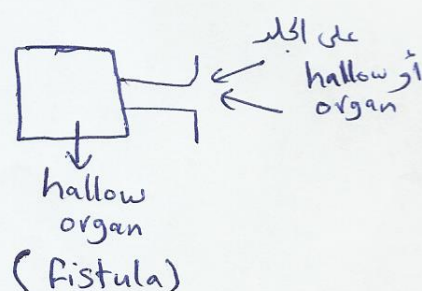 على الجلد
أو hallow
organ
hallow
organ
(fistula)